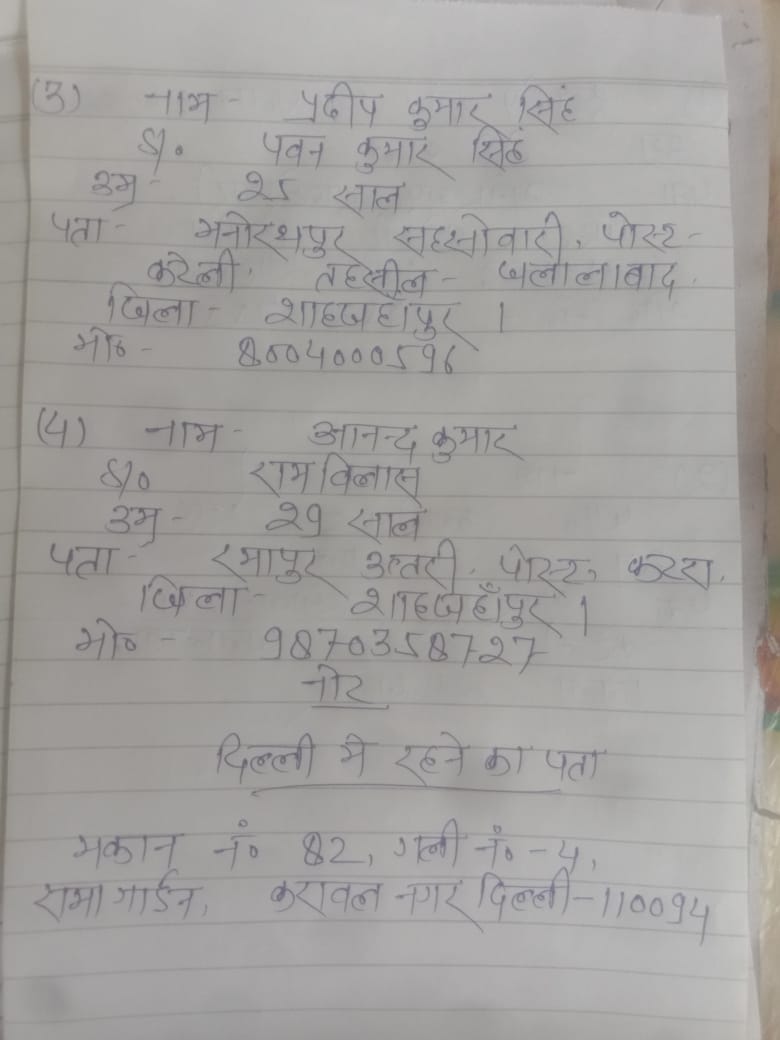 (3) नाम - प्रदीप कुमार सिंह
S/o पवन कुमार सिंह
उम्र - 25 साल
पता - मनोरथपुर सहसोवारी, पोस्ट -
करेली, तहसील - जलालाबाद,
जिला - शाहजहांपुर ।
मो० - 8004000596
(4) नाम - आनन्द कुमार
S/o रामविलास
उम्र - 29 साल
पता - रमापुर उत्तरी, पोस्ट,
जिला - शाहजहाँपुर ।
मो० - 9870358727
नोट
दिल्ली मे रहने का पता
मकान नं० 82, गली नं० - 4,
रामा गार्डन, करावल नगर दिल्ली - 110094